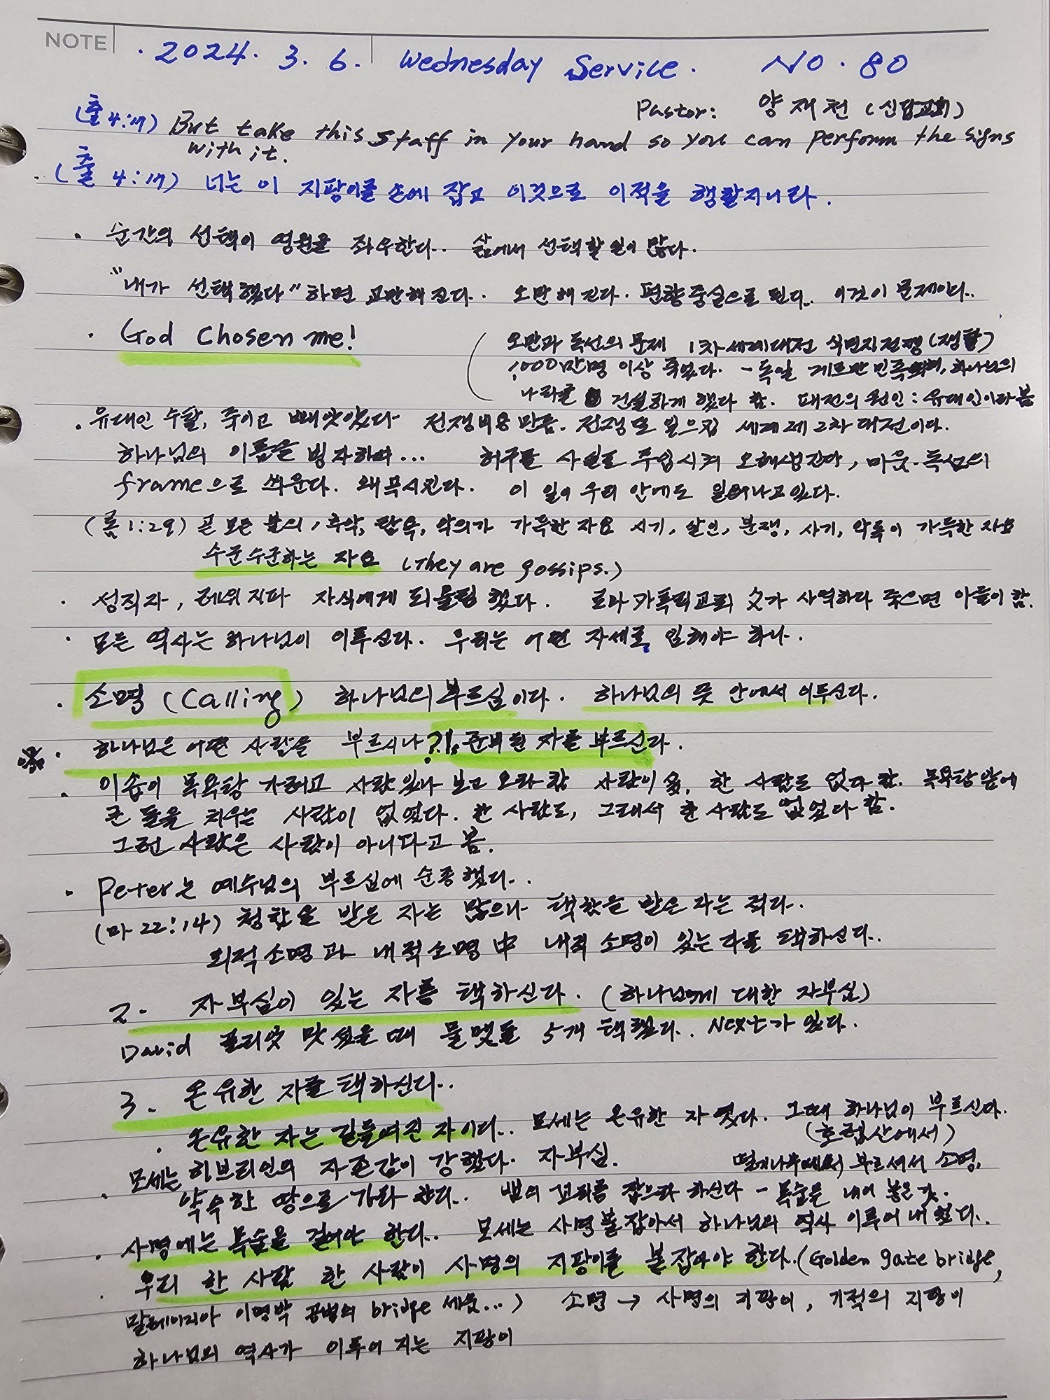 NOTE
· 2024. 3. 6. Wednesday Service. NO. 80
Pastor: 양재천 (신답교회)
(출 4:17) But take this staff in your hand so you can perform the signs
with it.
· (출 4:17) 너는 이 지팡이를 손에 잡고 이것으로 이적을 행할지니라.
· 순간의 선택이 영원을 좌우한다.. 삶에서 선택할 일이 많다.
"내가 선택했다"하면 교만해진다. 오만해진다. 편향중심으로 된다.. 이것이 문제이다..
· God Chosen me!
( 오만과 독선의 문제 1차세계대전 식민지전쟁 (쟁탈)
1000만명 이상 죽었다. - 독일 게르만 민족 하나님의
나라를 건설하게 했다 함. 패전의 원인: 유대인이라 봄
· 유대인 수탈, 죽이고 빼앗았다 전쟁비용 만큼. 전쟁 또 일으킴 세계 제 2차 대전이다.
하나님의 이름을 빙자하여... 허구를 사실로 주입시켜 오해생긴다, 미움·독선의
frame으로 싸운다. 왜곡시킨다. 이 일이 우리 안에도 일어나고 있다.
(롬 1:29) 곧 모든 불의, 추악, 탐욕, 악의가 가득한 자요 시기, 살인, 분쟁, 사기, 악독이 가득한 자요
수군수군하는 자요 (They are gossips.)
· 성직자, 레위지파 자식에게 되물림 했다. 로마 카톡릭교회 父가 사역하다 죽으면 아들이 함.
· 모든 역사는 하나님이 이루신다. 우리는 어떤 자세로 임해야 하나.
· 소명 (Calling) 하나님의 부르심이다. 하나님의 뜻 안에서 이루신다.
※ · 하나님은 어떤 사람을 부르시나?1. 준비된 자를 부르신다.
· 이솝이 목욕탕 가려고 사람있나 보고 오라함 사람이 多, 한 사람도 없다 함. 목욕탕 앞에
큰 돌을 치우는 사람이 없었다. 한 사람도, 그래서 한 사람도 없었다 함.
그런 사람은 사람이 아니다고 봄.
· Peter는 예수님의 부르심에 순종했다..
(마 22:14) 청함을 받은 자는 많으나 택함을 받은 자는 적다..
외적 소명과 내적소명 中 내적 소명이 있는 자를 택하신다..
2. 자부심이 있는 자를 택하신다. (하나님께 대한 자부심)
David 골리앗 맞섰을 때 물맷돌 5개 택했다.. Next가 있다.
3. 온유한 자를 택하신다..
· 온유한 자는 길들여진 자이다.. 모세는 온유한 자였다. 그때 하나님이 부르신다.
(호렙산에서)
· 모세는 히브리인의 자존감이 강했다. 자부심. 떨기나무에서 부르셔서 소명.
약속한 땅으로 가라 한다.. 뱀의 꼬리를 잡으라 하신다 - 목숨을 내어 놓은 것.
· 사명에는 목숨을 걸어야 한다.. 모세는 사명붙잡아서 하나님의 역사 이루어 내 졌다..
· 우리 한 사람 한 사람이 사명의 지팡이를 붙잡아야 한다. (Golden gate bridge,
말레이지아 이명박 공법의 bridge 세움...) 소명 → 사명의 지팡이, 기적의 지팡이
하나님의 역사가 이루어 지는 지팡이